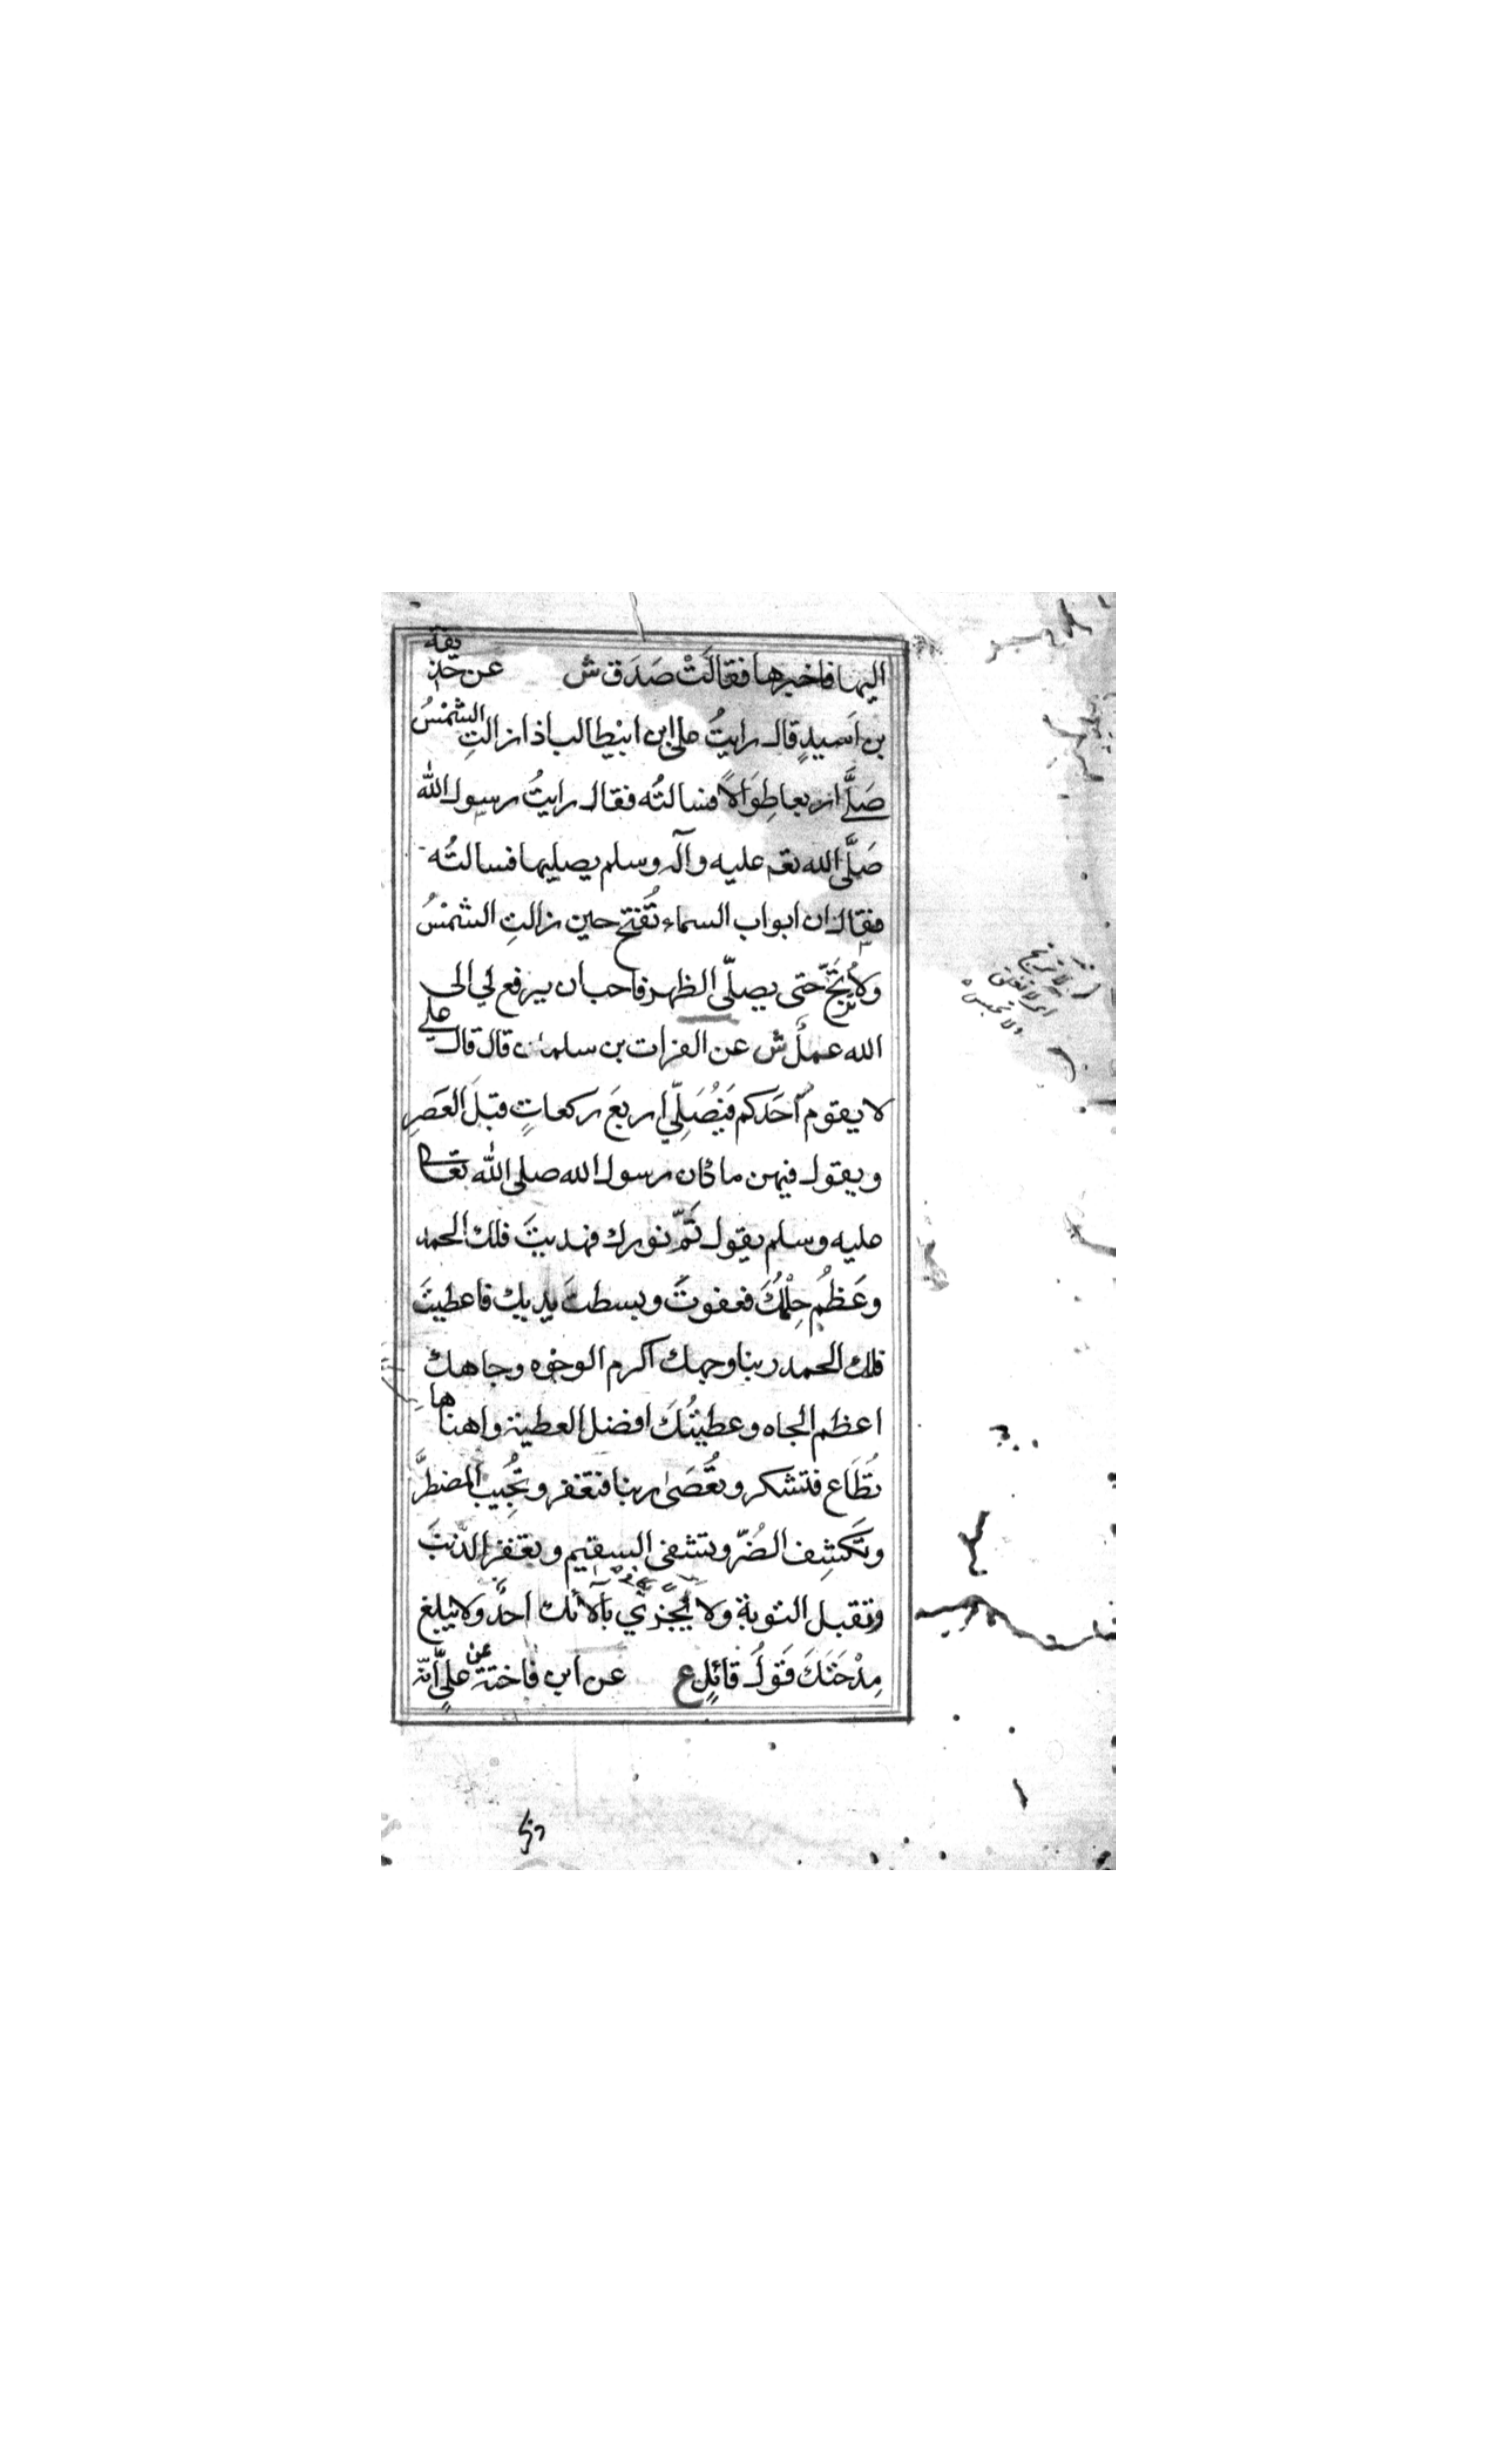 اليها فاخبرها فقالَتْ صَدَق ش عن حذيفة
بن اَسيدٍ قال رايتُ علي ابن ابيطالب اذا زالتِ الشمْسُ
صَلَّى اربعا طِوَالاً فسالتُه فقال رايتُ رسول الله
صَلَّى الله تعـ عليه وآله وسلم يصليها فسالتُه
فقال ان ابواب السماء تُفتح حين زالتِ الشمْسُ
ولا تُرْتَجّ حتى يصلّى الظهر فاحب ان يرفع لي الى
الله عملٌ ش عن الفرات بن سلمان قال قال علي
لا يقوم اَحَدكم فيُصَلِّي اربعَ ركعاتٍ قبلَ العَصرِ
ويقول فيهن ما كان رسول الله صلى الله تعالى
عليه وسلم يقول تَمّ نورك فهديتَ فلك الحمد
وعَظُم حِلْمُكَ فعفوتَ وبسطتَ يديك فاعطيتَ
فلك الحمد ربنا وجهك اكرم الوجوه وجاهك
اعظم الجاه وعطيتُكَ افضل العطية واهناها
تُطَاع فتشكر وتُعصَى ربنا فتغفر وتُجِيب المضطرَّ
وتَكشِف الضُرّ وتشفى السقيم وتغفر الذنبَ
وتقبل التوبة ولا يَجزي بآلائك احدٌ ولا يبلغ
مِدْحَتَكَ قَولُ قائلٍ ع عن ابى فاختة عن عليٍّ انّه
لا ترتج
اى لا تغلق
ولا تحبس